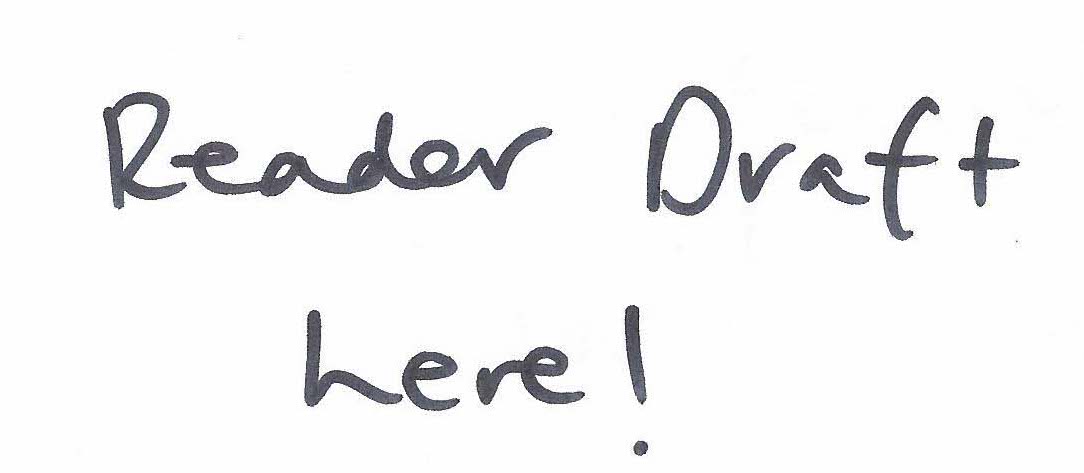 Reader Draft
here!